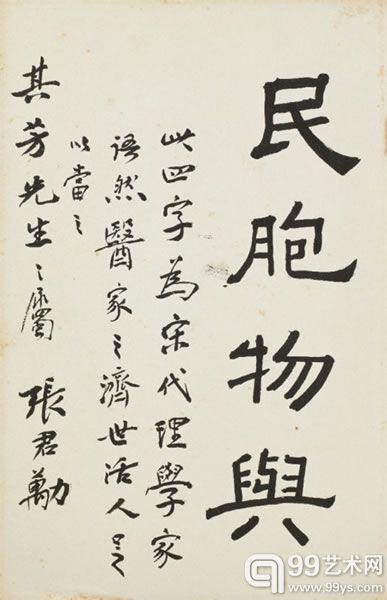 民胞物與
此四字為宋代理學家
語然醫家之濟世活人足
以當之
其芳先生之屬 張君勱
99艺术网
www.99ys.com